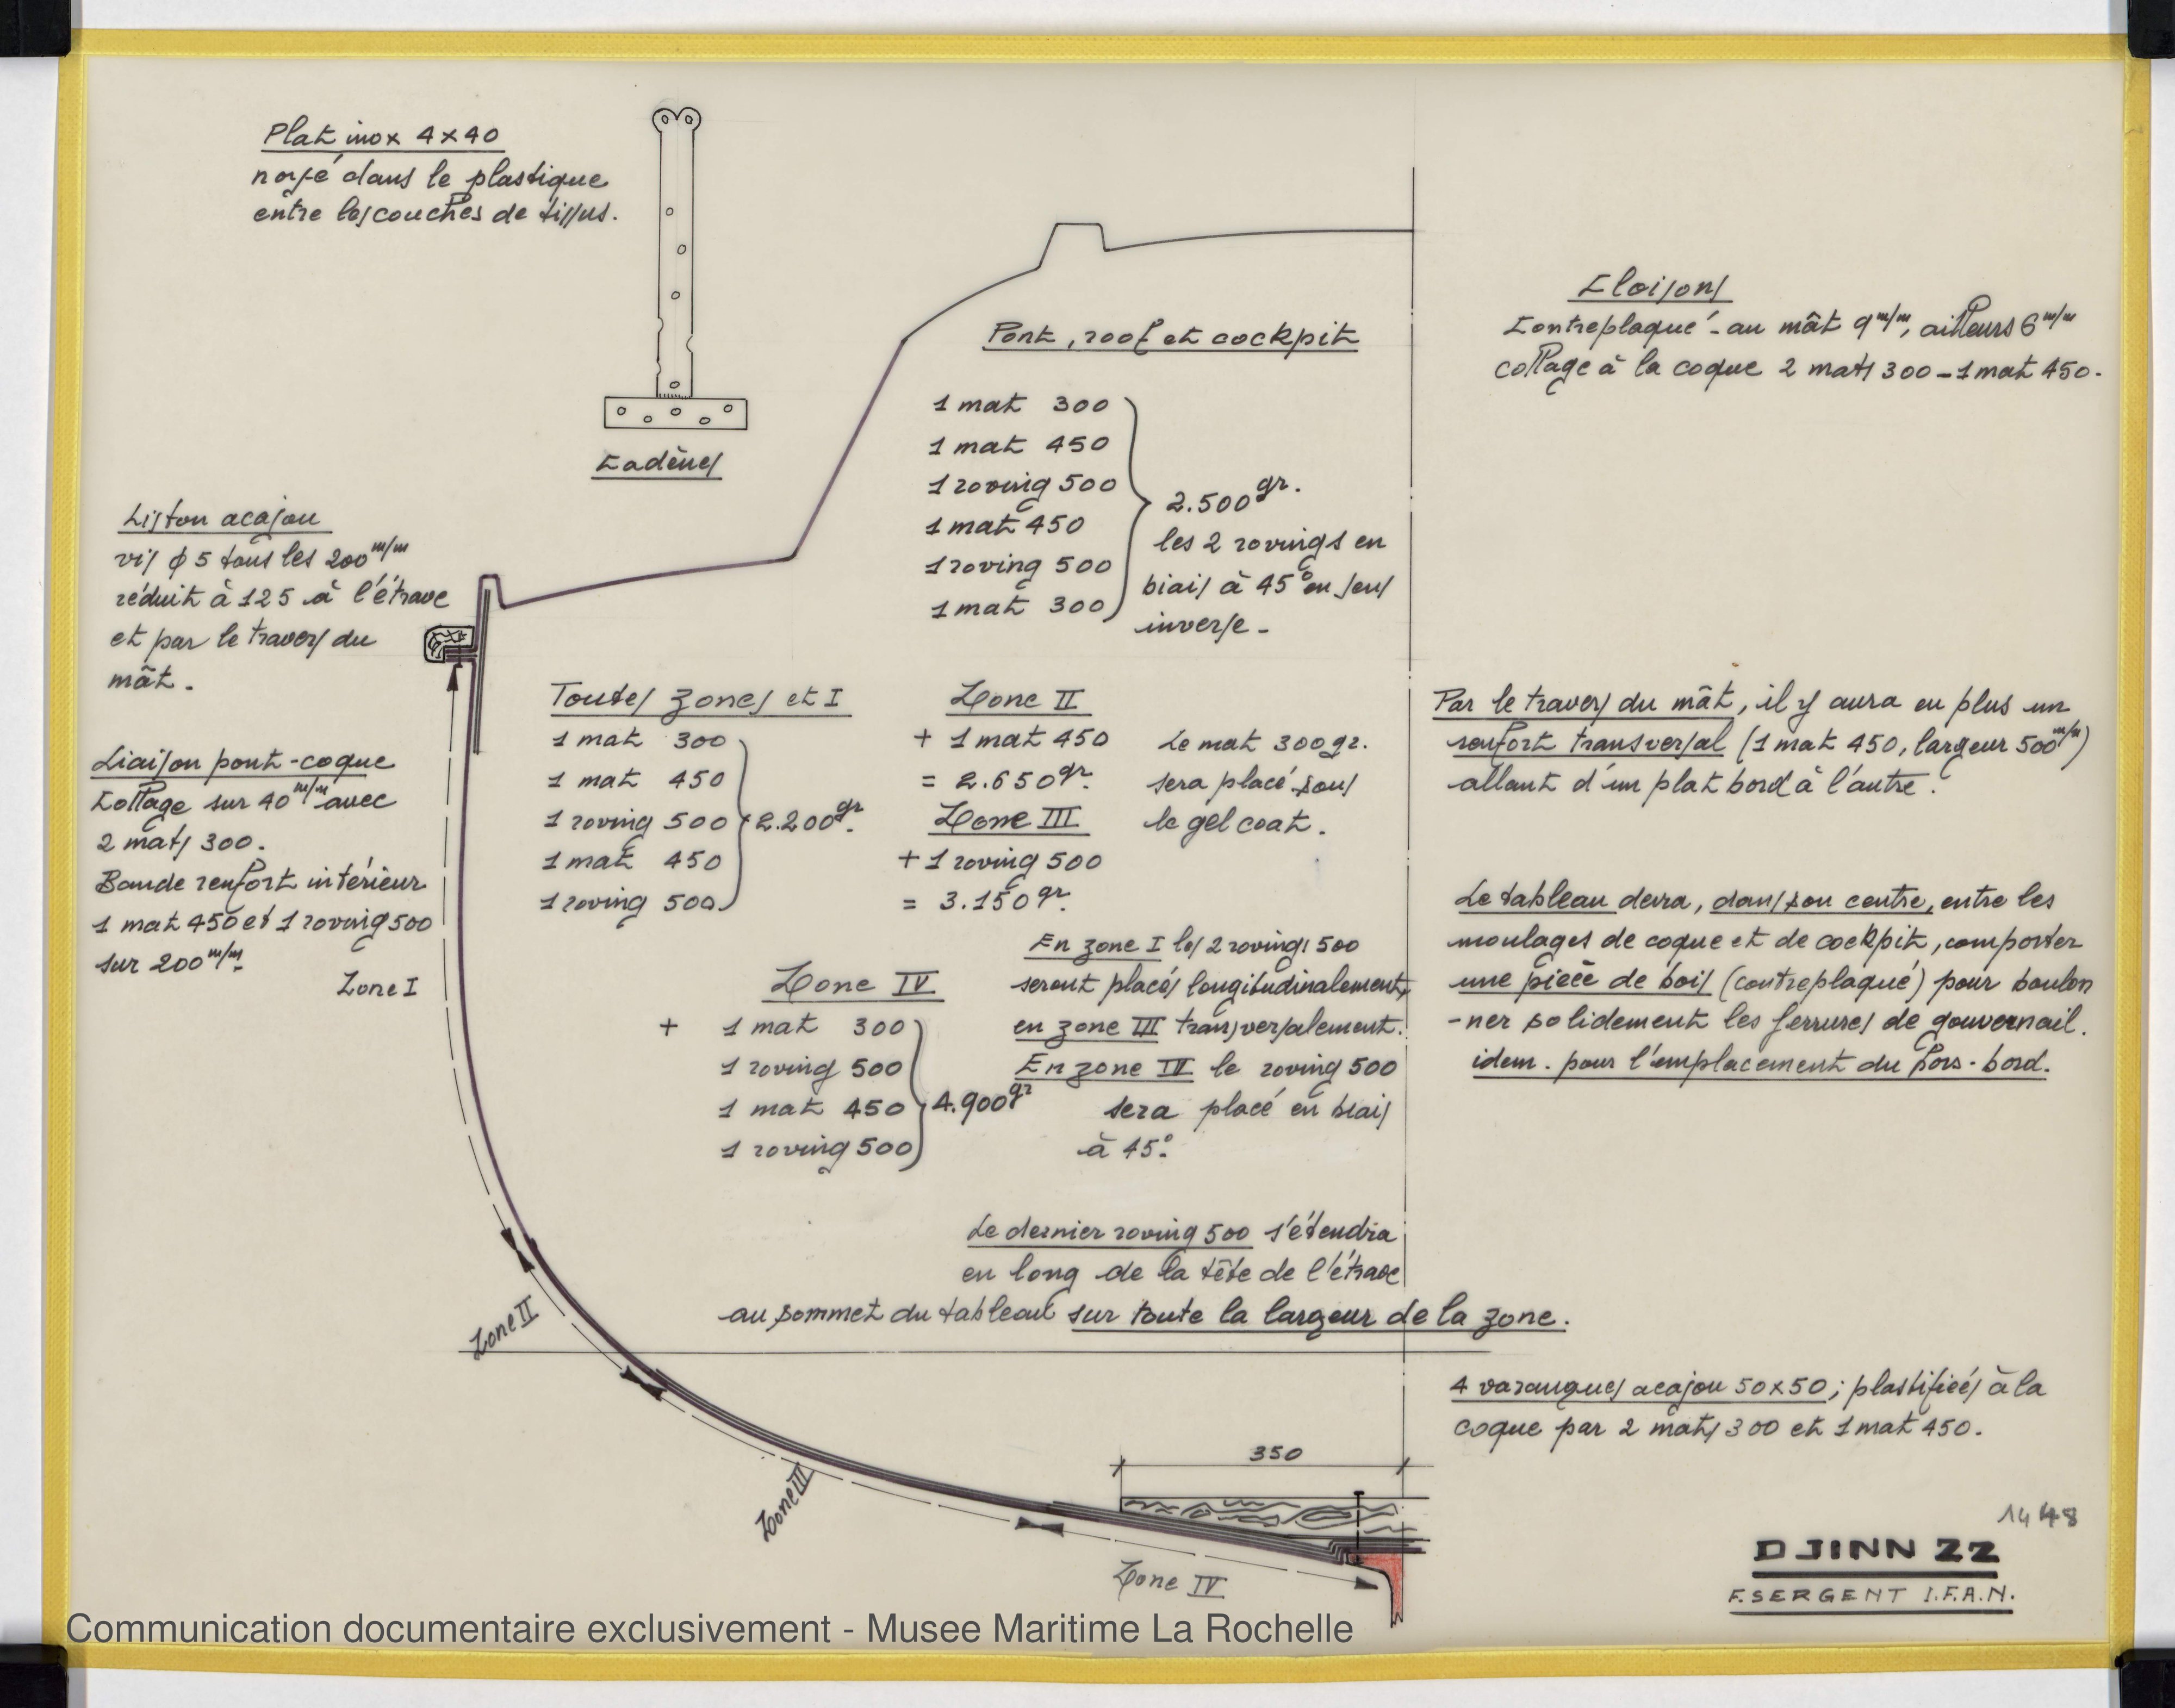 Plat inox 4x40
noyé dans le plastique
entre les couches de tissus.
Cadènes
Cloisons
Contreplaqué - au mât 9 m/m, ailleurs 6 m/m
collage à la coque 2 mats 300 - 1 mat 450.
Pont, roof et cockpit
1 mat 300
1 mat 450
1 roving 500
1 mat 450
1 roving 500
1 mat 300
2.500 gr.
les 2 rovings en
biais à 45° en sens
inverse -
Liston acajou
vis ϕ 5 tous les 200 m/m
réduit à 125 à l'étrave
et par le travers du
mât.
Liaison pont-coque
Collage sur 40 m/m avec
2 mats 300.
Bande renfort intérieur
1 mat 450 et 1 roving 500
sur 200 m/m.
Zone I
Toutes zones et I
1 mat 300
1 mat 450
1 roving 500
1 mat 450
1 roving 500
2.200 gr.
Zone II
+ 1 mat 450
= 2.650 gr.
Zone III
+ 1 roving 500
= 3.150 gr.
Le mat 300 gr.
sera placé sous
le gel coat.
Zone IV
+ 1 mat 300
1 roving 500
1 mat 450
1 roving 500
4.900 gr
En zone I les 2 rovings 500
seront placés longitudinalement,
en zone III transversalement.
En zone IV le roving 500
sera placé en biais
à 45°.
Le dernier roving 500 s'étendra
en long de la tête de l'étrave
au sommet du tableau sur toute la largeur de la zone.
Par le travers du mât, il y aura en plus un
renfort transversal (1 mat 450, largeur 500 m/m)
allant d'un plat bord à l'autre.
Le tableau devra, dans son centre, entre les
moulages de coque et de cockpit, comporter
une pièce de bois (contreplaqué) pour boulon
-ner solidement les ferrures de gouvernail.
idem. pour l'emplacement du hors-bord.
4 varangues acajou 50x50; plastifiées à la
coque par 2 mats 300 et 1 mat 450.
Zone II
Zone III
350
Zone IV
1448
DJINN 22
F. SERGENT I.F.A.N.
Communication documentaire exclusivement - Musee Maritime La Rochelle